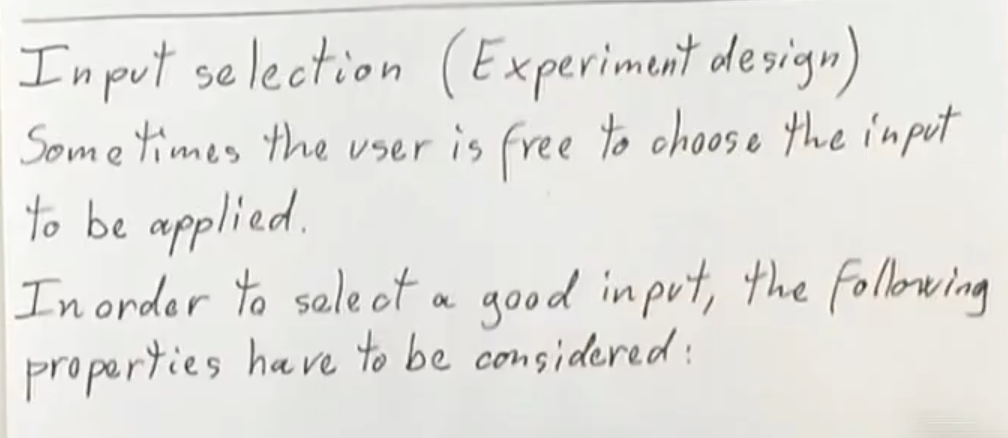 Input selection (Experiment design)
Sometimes the user is free to choose the input
to be applied.
In order to select a good input, the following
properties have to be considered: